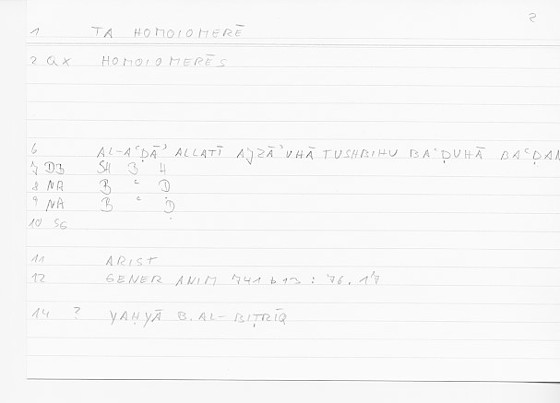 2
1 TA HOMOIOMERĒ
2 ax HOMOIOMERĒS
6 AL-AʿḌĀʾ ALLATĪ AJZĀʾUHĀ TUSHBIHU BAʿḌUHĀ BAʿḌAN
7 D3 SH 3 4
8 NA B ʿ Ḍ
9 NA B ʿ Ḍ
10 SG
11 ARIST
12 GENER ANIM 741 b 13 : 76.
14 ? YAḤYĀ B. AL-BIṬRĪQ